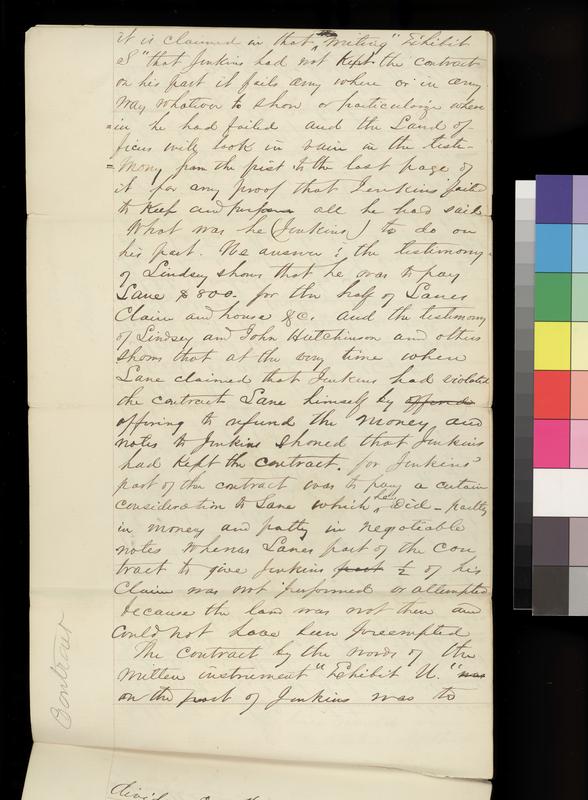 it is claimed in that the "writing" Exhibit
"that Jenkins had not kept the contract
on his part it fails any where or in any
way whatever to show or particularize where
=in he had failed and the Land of-
fices will look in vain in the testi-
=mony from the first to the last page of
it for any proof that Jenkins failed
to keep and perform all he had said
What was he (Jenkins) to do on
his part. We answer; the testimony
of Lindsey shows that he was to pay
Lane $800. for the half of Lanes
Claim and house &c. and the testimony
of Lindsey and John Hutchinson and others
shows that at the very time when
Lane claimed that Jenkins had violated
the contract Lane himself by offered
offering to refund the money and
notes to Jenkins showed that Jenkins
had kept the contract. for Jenkins'
part of the contract was to pay a certain
consideration to Lane which he did - partly
in money and partly in negotiable
notes whereas Lanes part of the con
tract to give Jenkins part ½ of his
Claim was not performed or attempted
because the land was not then and
could not have been preempted
The contract by the words of the
written instrument "Exhibit U." was
on the part of Jenkins was to
Contract